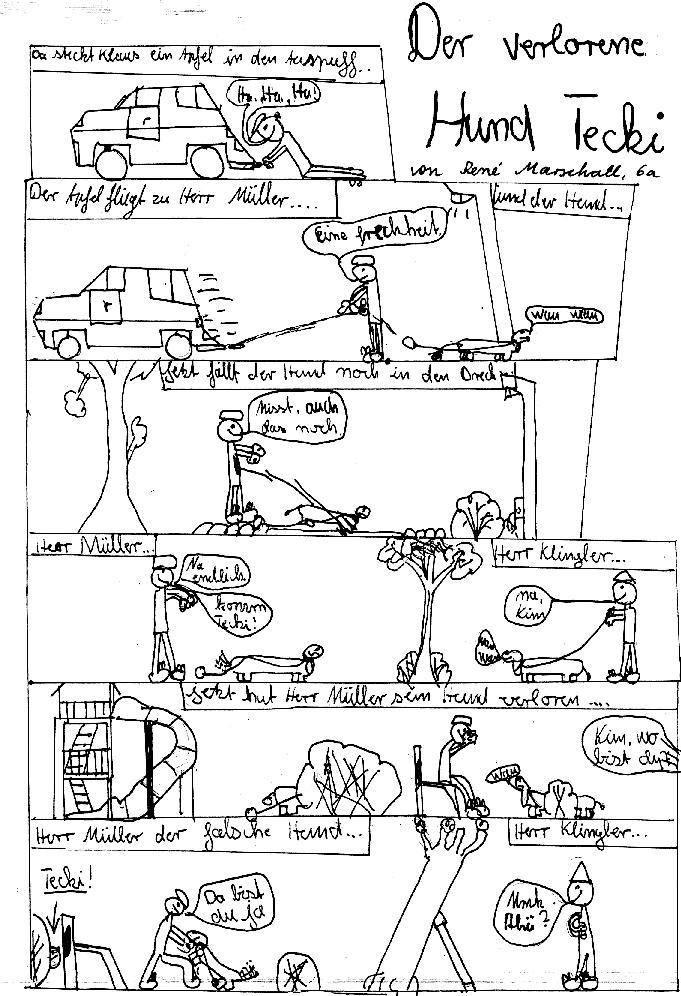 Der verlorene
Hund Tecki
von René Marschall, 6a
Da steckt Klaus ein Apfel in den Auspuff..
Ha, Ha, Ha!
Der Apfel fliegt zu Herr Müller....
und der Hund...
Eine frechheit.
wau wau
Jetzt fällt der Hund noch in den Dreck
Misst, auch
das noch
Herr Müller...
Na
endlich
komm
Tecki!
Herr Klingler...
na,
Kim
wau
wau
Jetzt hat Herr Müller sein Hund verloren ....
wau
Kim, wo
bist du?
Herr Müller der falsche Hund...
Herr Klingler...
Tecki!
Da bist
du ja